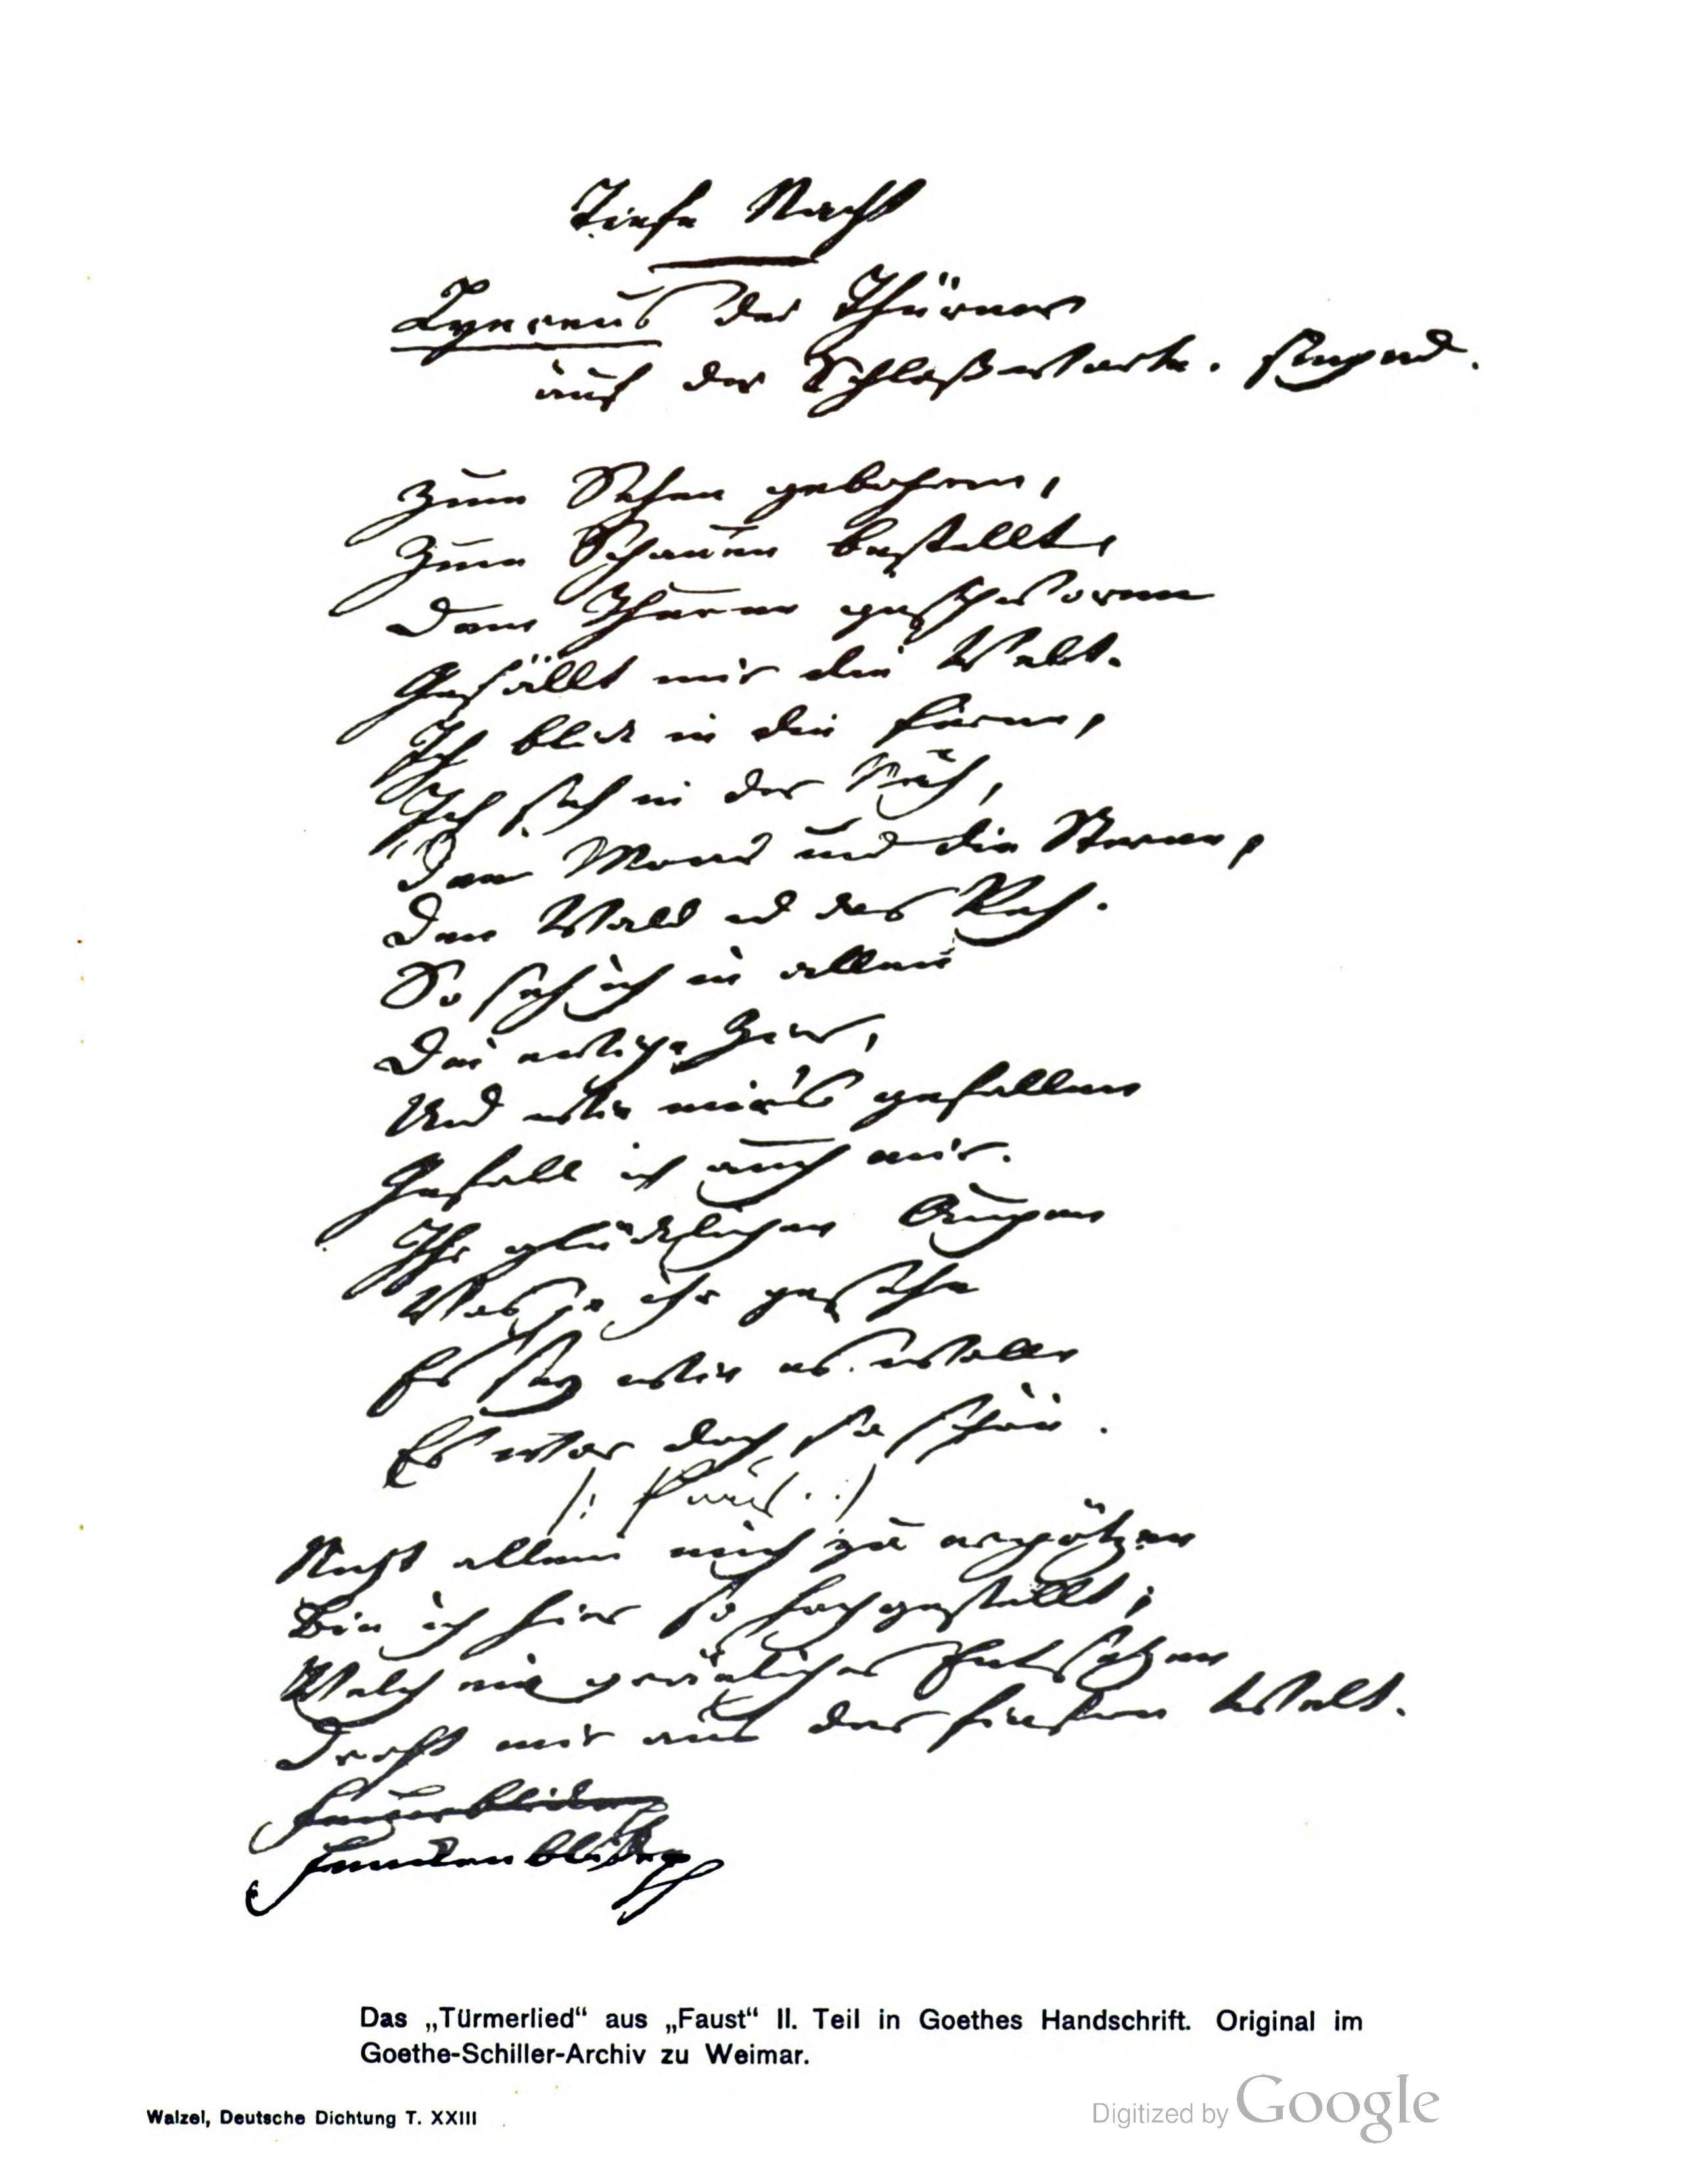 Tiefe Nacht
Lynceus der Thürner
auf der Schloßwarte. singend.
Zum Sehen gebohren,
Zum Schauen bestellt,
Dem Thurne geschworen
Gefällt mir die Welt.
Ich blick in die Ferne,
Ich seh in der Näh,
Den Mond und die Sterne,
Den Wald und das Reh.
So seh ich in allen
Die ewige Zier,
Und wie mir's gefallen
Gefall ich auch mir.
Ihr glücklichen Augen
Was je ihr gesehn
Es sey wie es wolle
Es war doch so schön.
/: Paus. :/
Nicht allein mich zu ergötzen
Bin ich hier so hoch gestellt;
Welch ein gräuliches Entsetzen
Droht mir aus der finstern Welt.
Funkenblicke
Das „Türmerlied“ aus „Faust“ II. Teil in Goethes Handschrift. Original im
Goethe-Schiller-Archiv zu Weimar.
Walzel, Deutsche Dichtung T. XXIII
Digitized by Google